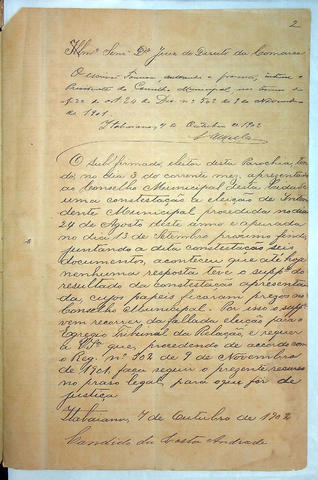 2
Illmº Senr. Dr Juiz de Direito da Comarca
O escrivão
Presidente do Conselho Municipal,
nº 22 e art 24 do Dec. nº 502 de 9 de Novembro
de 1901.
Itabaiana, 4 de Outubro de 1902
O abaixo firmado, eleitor desta Parochia, ten-
do, no dia 3 do corrente mez, apresentado
ao Conselho Municipal desta Cidade
uma constestação á eleição de Inten-
dente Municipal procedida no dia
24 de Agosto deste anno e apurada
no dia 13 de Setembro proximo findo,
juntando a dita constestação seis
documentos, aconteceu que até hoje
nenhuma resposta teve o suppte do
resultado da constestação apresenta-
da, cujos papeis ficaram prezos no
Conselho Municipal. Por isso o suppte
vem recorrer da fallada eleição para o
Egregio Tribunal da Relação, e requer
a V. Sª que, procedendo de accordo com
o Reg. nº 502 de 9 de Novembro
de 1901, faça seguir o prezente recurso
no praso legal, para o que for de
justiça
Itabaiana, 4 de Outubro de 1902
Candido da Costa Andrade